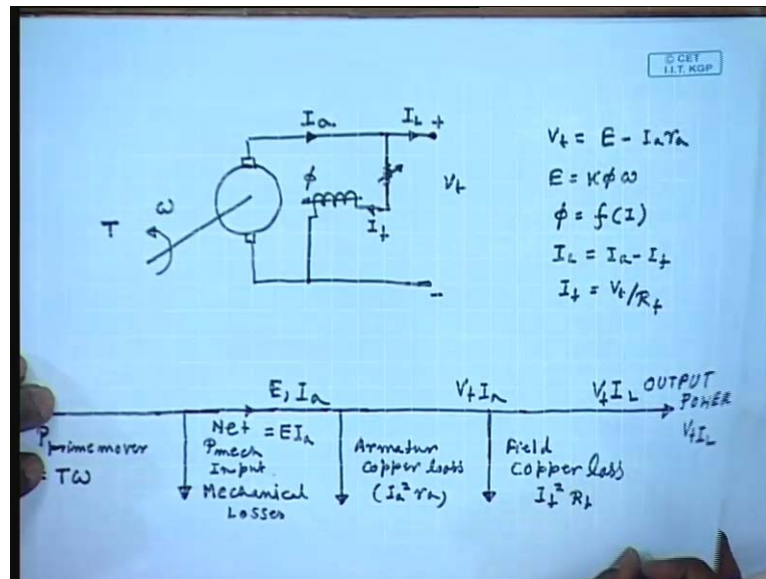 © CET
I.I.T. KGP
Ia
IL +
Vt
ϕ
If
ω
T
-
Vt = E - Ia ra
E = Kϕω
ϕ = f(I)
IL = Ia - If
If = Vt/Rf
E, Ia
VtIa
VtIL OUTPUT
POWER
VtIL
Pprimemover
= Tω
Net = EIa
Pmech
Input
Mechanical
Losses
Armatur
copper loss
(Ia² ra)
Field
copper loss
If² Rf